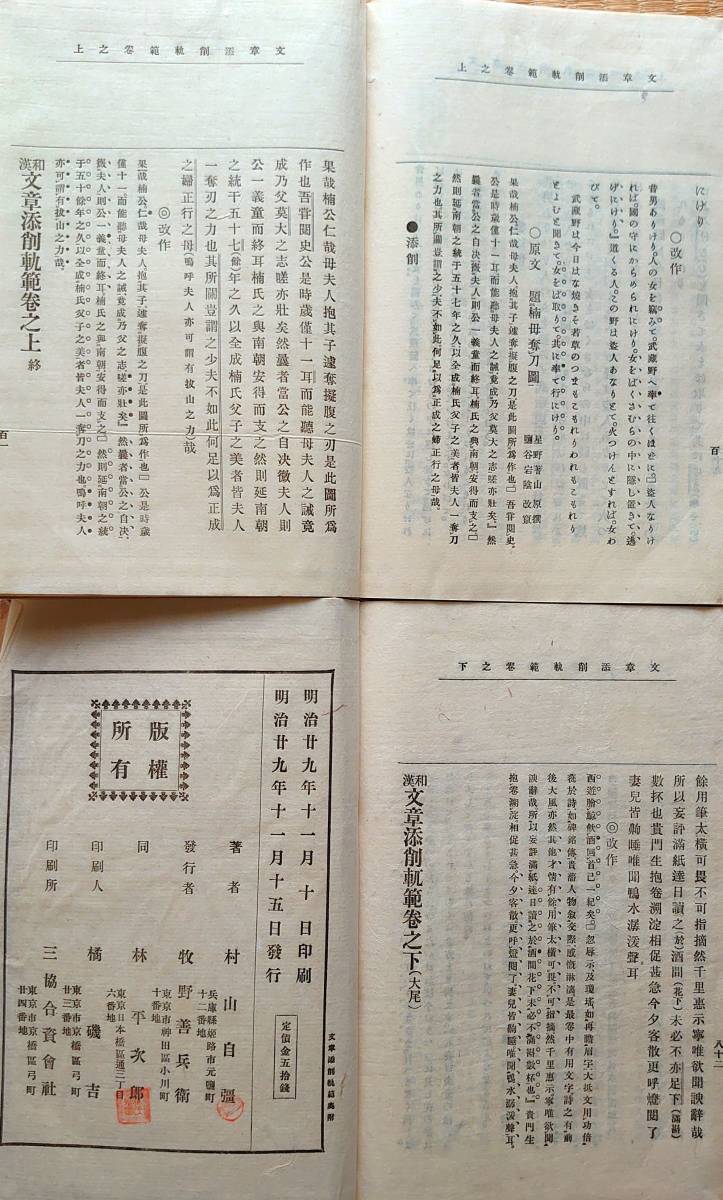 文章添削軌範卷之上
百
にけり
◯改作
昔男ありけり。人の女を竊みて。武蔵野へ奉て往くほどに。盜人なりけ
れば。國の守にからめられにけり。女をばくさむらの中に隱し置きて。逃
げにけり。道くる人。この野は盜人あなりとて。火つけんとすれば。女わ
びて。
武蔵野は今日はな燒きそ若草のつまもこもれりわれもこもれり
とよむと聞きて。女をば取りて。共に奉て行にけり。
◯原文 題楠母奪刀圖
星野著山 原撰
鹽谷宕陰 改竄
果哉楠公仁哉母夫人抱其子遽奪擬腹之刀是此圖所爲作也吾甞閱史
公是時歲僅十一耳而能聽母夫人之誡竟成乃父莫大之志嗟亦壯矣然
曩者當公之自决微夫人則公一義童而終耳楠氏之與南朝安得而支之
然則延南朝之統于五十七年之久以全成楠氏父子之美者皆夫人一奪刀
之力也其所關豈謂之少夫不如此何足以爲正成之婦正行之母哉
●添削
文章添削軌範卷之上
百一
果哉楠公仁哉母夫人抱其子遽奪擬腹之刃是此圖所爲
作也吾甞閱史公是時歲僅十一耳而能聽母夫人之誡竟
成乃父莫大之志嗟亦壯矣然曩者當公之自决微夫人則
公一義童而終耳楠氏之與南朝安得而支之然則延南朝
之統于五十七(餘)年之久以全成楠氏父子之美者皆夫人
一奪刃之力也其所關豈謂之少夫不如此何足以爲正成
之婦正行之母嗚呼夫人亦可謂有拔山之力)哉
◎改作
果哉楠公仁哉母夫人抱其子遽奪擬腹之刀是此圖所爲作也公是時歲
僅十一而能聽母夫人之誡竟成乃父之志嗟亦壯矣然曩者當公之自决
微夫人則公一義童而終耳楠氏之與南朝安得而支之然則延南朝之統
于五十餘年之久以全成楠氏父子之美者皆夫人一奪刀之力也嗚呼夫人
亦可謂有拔山之力哉
和漢文章添削軌範卷之上 終
文章添削軌範卷之下
八十二
餘用筆太橫可畏不可指摘然千里惠示寧唯欲聞諛辭哉
所以妄評滿紙達日讀之(於)酒間(花下)未必不亦足下(滿溢)
數杯也貴門生抱卷溯淀相促甚急今夕客散更呼燈閱了
妻兒皆齁睡唯聞鴨水潺湲聲耳
◎改作
和漢文章添削軌範卷之下(大尾)
文章添削軌範奥附
定價金五拾錢
明治廿九年十一月十日印刷
明治廿九年十一月十五日發行
著者 村山自彊
兵庫縣姬路市元鹽町十二番地
發行者 牧野善兵衛
東京市神田區小川町十番地
同 林平次郎
東京日本橋區通三丁目六番地
印刷人 橘磯吉
東京市京橋區弓町廿三番地
印刷所 三協合資會社
東京市京橋區弓町廿四番地
版權所有